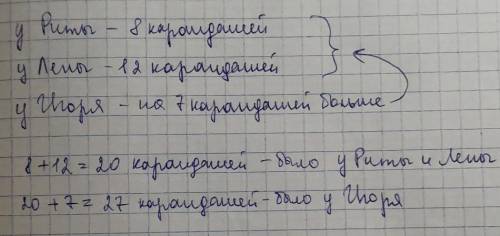 у Риты - 8 карандашей
у Лены - 12 карандашей
у Игоря - на 7 карандашей больше
8+12=20 карандашей - было у Риты и Лены
20+7=27 карандашей - было у Игоря